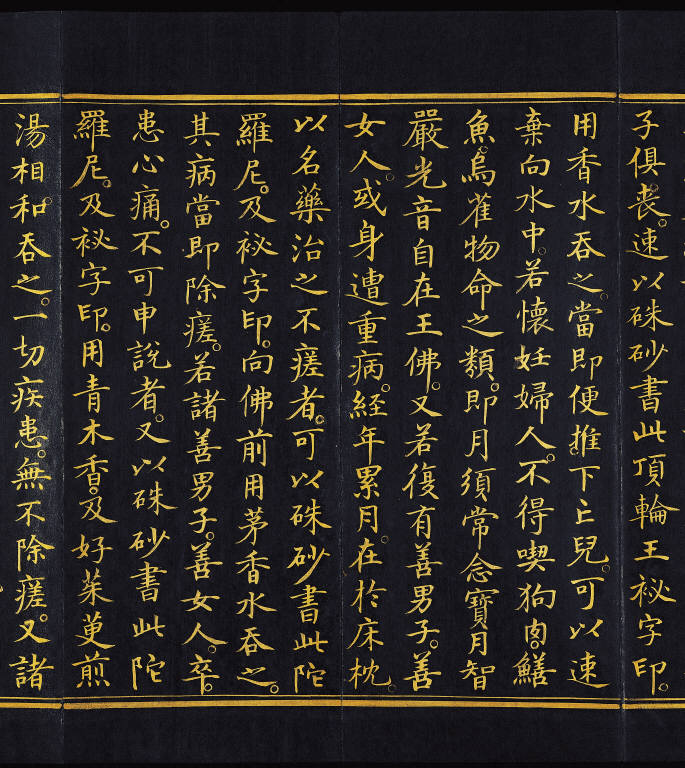 子俱喪。速以硃砂書此頂輪王祕字印。
用香水吞之。當即便推下亡兒。可以速
棄向水中。若懷妊婦人。不得喫狗肉。鱔
魚。烏雀物命之類。即月須常念寶月智
嚴光音自在王佛。又若復有善男子。善
女人。或身遭重病。經年累月。在於床枕
以名藥治之不瘥者。可以硃砂書此陀
羅尼。及祕字印。向佛前用茅香水吞之。
其病當即除瘥。若諸善男子。善女人。卒
患心痛。不可申說者。又以硃砂書此陀
羅尼。及祕字印。用青木香。及好茱萸煎
湯相和吞之。一切疾患。無不除瘥。又諸